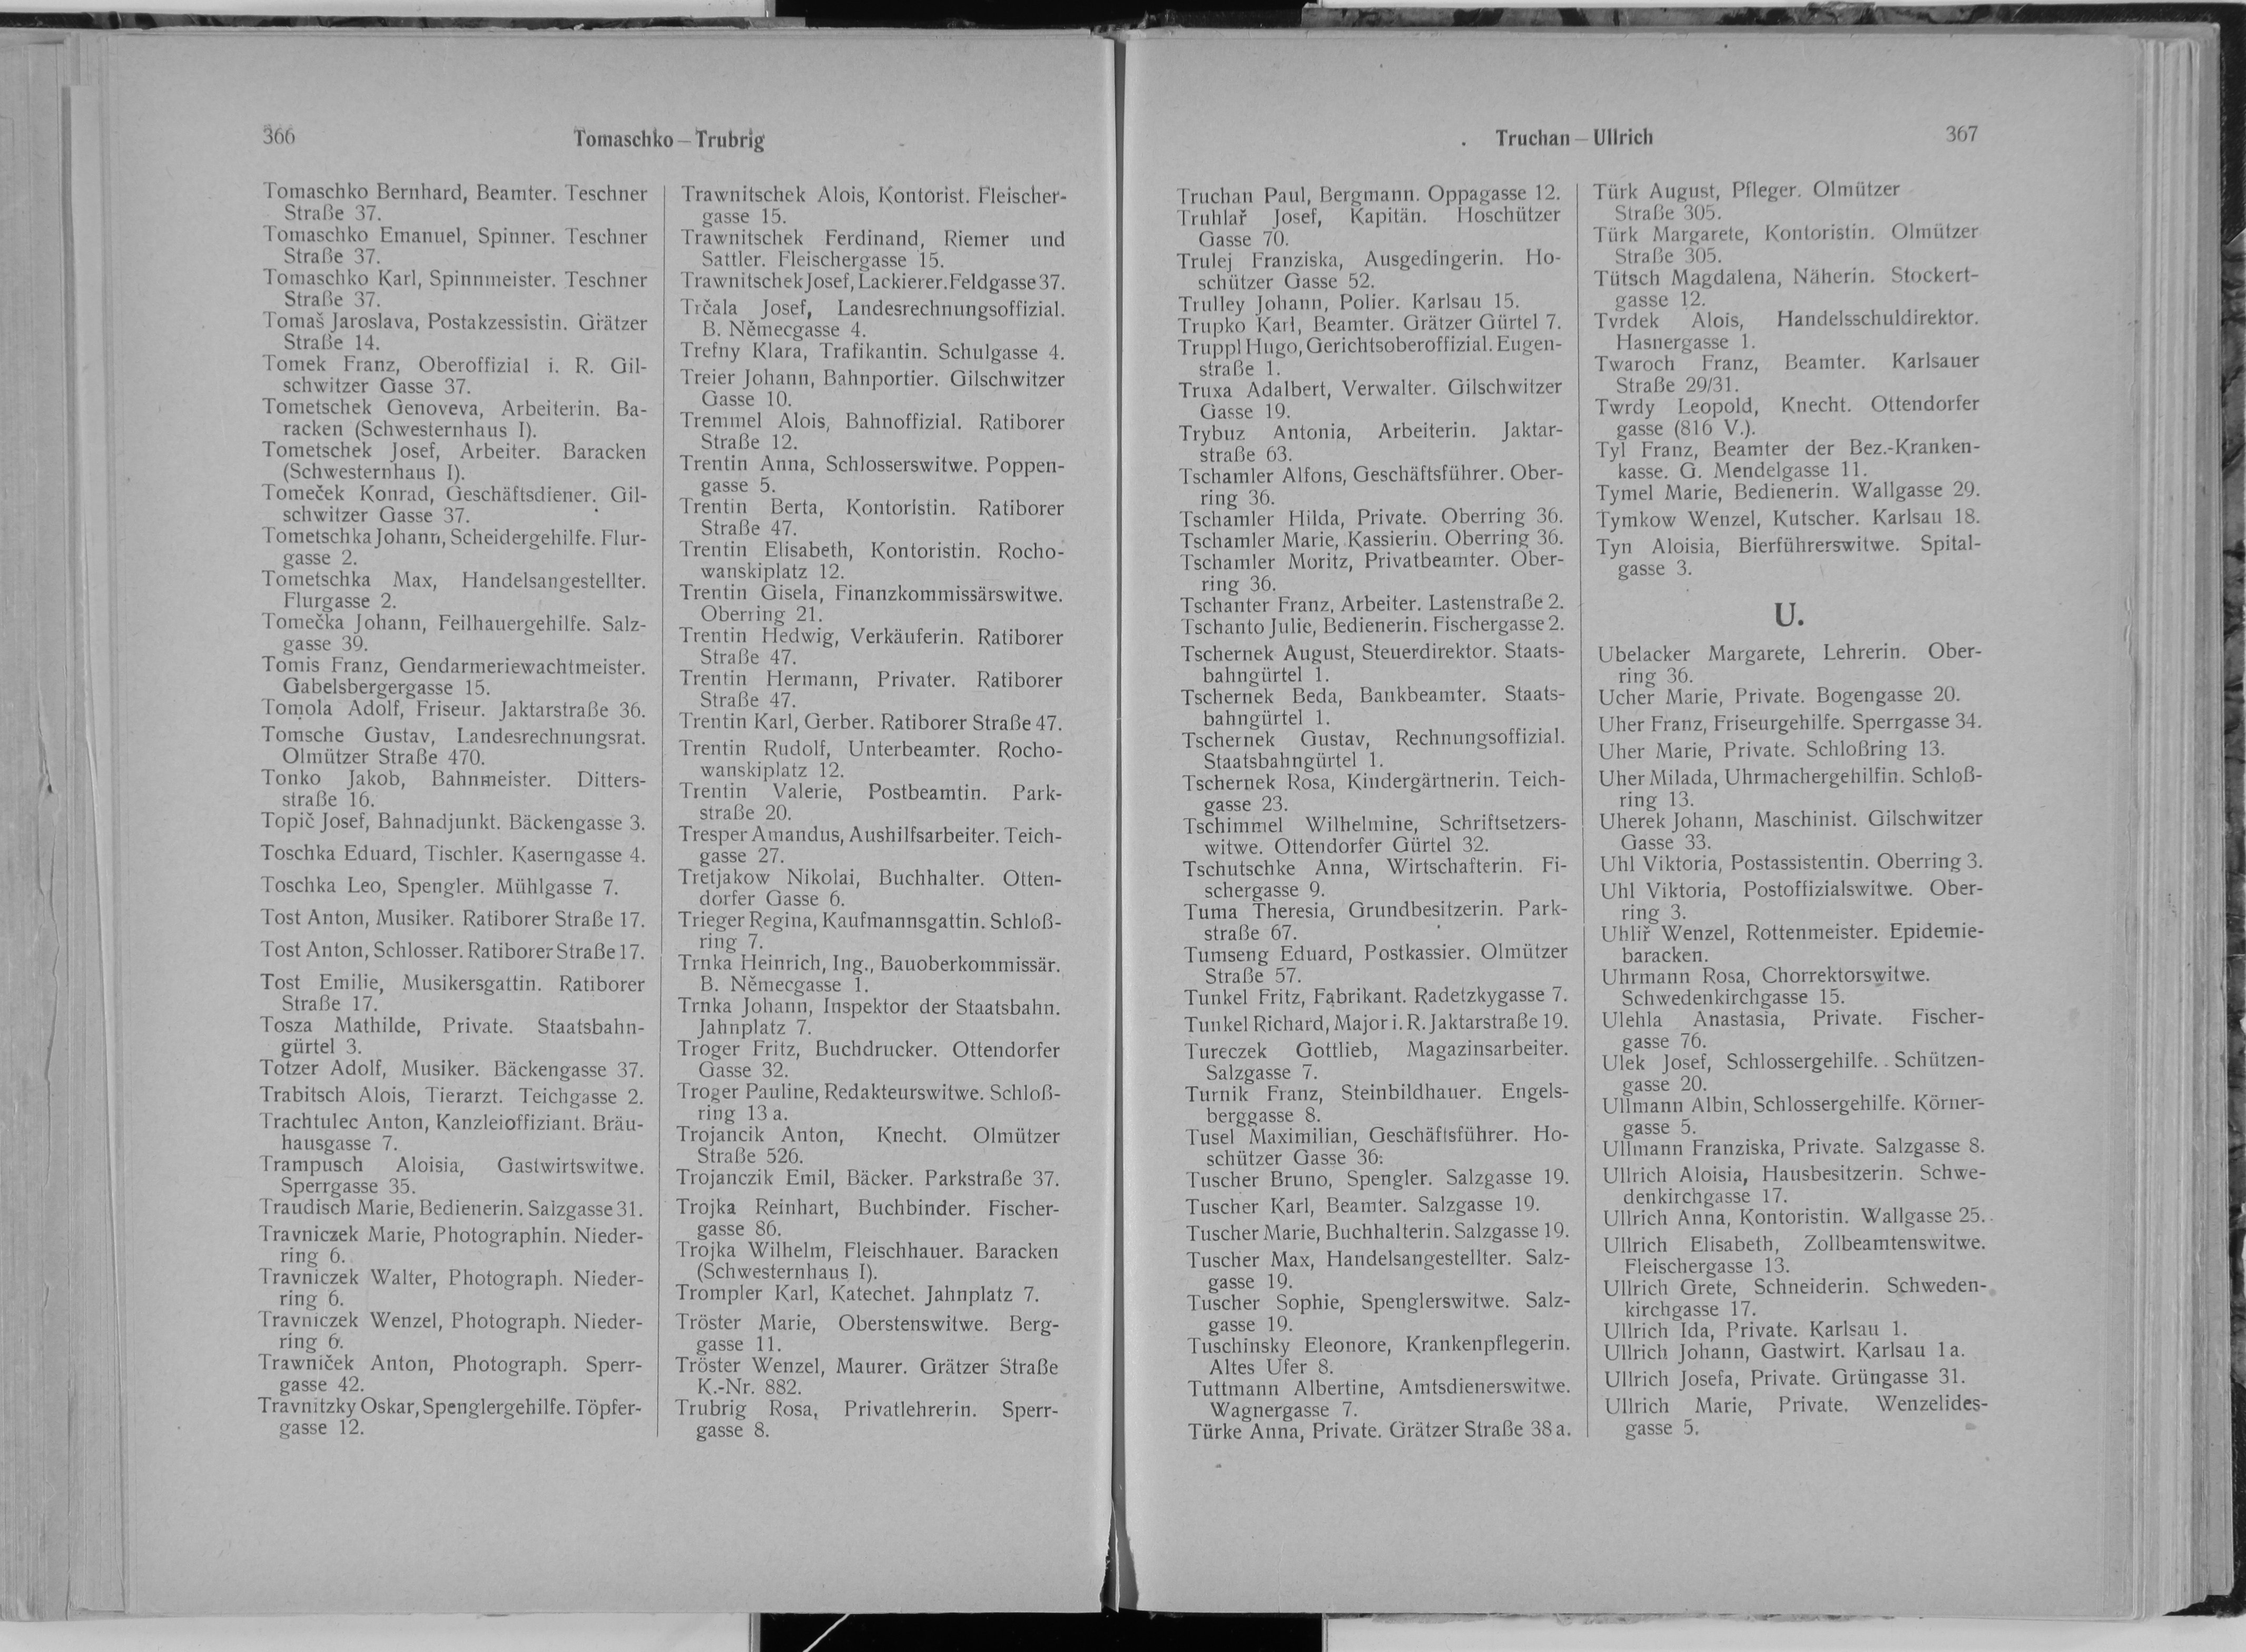 366
Tomaschko – Trubrig
Tomaschko Bernhard, Beamter. Teschner
Straße 37.
Tomaschko Emanuel, Spinner. Teschner
Straße 37.
Tomaschko Karl, Spinnmeister. Teschner
Straße 37.
Tomaš Jaroslava, Postakzessistin. Grätzer
Straße 14.
Tomek Franz, Oberoffizial i. R. Gil-
schwitzer Gasse 37.
Tometschek Genoveva, Arbeiterin. Ba-
racken (Schwesternhaus I).
Tometschek Josef, Arbeiter. Baracken
(Schwesternhaus I).
Tomeček Konrad, Geschäftsdiener. Gil-
schwitzer Gasse 37.
Tometschka Johann, Scheidergehilfe. Flur-
gasse 2.
Tometschka Max, Handelsangestellter.
Flurgasse 2.
Tomečka Johann, Feilhauergehilfe. Salz-
gasse 39.
Tomis Franz, Gendarmeriewachtmeister.
Gabelsbergergasse 15.
Tomola Adolf, Friseur. Jaktarstraße 36.
Tomsche Gustav, Landesrechnungsrat.
Olmützer Straße 470.
Tonko Jakob, Bahnmeister. Ditters-
straße 16.
Topič Josef, Bahnadjunkt. Bäckengasse 3.
Toschka Eduard, Tischler. Kaserngasse 4.
Toschka Leo, Spengler. Mühlgasse 7.
Tost Anton, Musiker. Ratiborer Straße 17.
Tost Anton, Schlosser. Ratiborer Straße 17.
Tost Emilie, Musikersgattin. Ratiborer
Straße 17.
Tosza Mathilde, Private. Staatsbahn-
gürtel 3.
Totzer Adolf, Musiker. Bäckengasse 37.
Trabitsch Alois, Tierarzt. Teichgasse 2.
Trachtulec Anton, Kanzleioffiziant. Bräu-
hausgasse 7.
Trampusch Aloisia, Gastwirtswitwe.
Sperrgasse 35.
Traudisch Marie, Bedienerin. Salzgasse 31.
Travniczek Marie, Photographin. Nieder-
ring 6.
Travniczek Walter, Photograph. Nieder-
ring 6.
Travniczek Wenzel, Photograph. Nieder-
ring 6.
Trawniček Anton, Photograph. Sperr-
gasse 42.
Travnitzky Oskar, Spenglergehilfe. Töpfer-
gasse 12.
Trawnitschek Alois, Kontorist. Fleischer-
gasse 15.
Trawnitschek Ferdinand, Riemer und
Sattler. Fleischergasse 15.
Trawnitschek Josef, Lackierer. Feldgasse 37.
Trčala Josef, Landesrechnungsoffizial.
B. Němecgasse 4.
Trefny Klara, Trafikantin. Schulgasse 4.
Treier Johann, Bahnportier. Gilschwitzer
Gasse 10.
Tremmel Alois, Bahnoffizial. Ratiborer
Straße 12.
Trentin Anna, Schlosserswitwe. Poppen-
gasse 5.
Trentin Berta, Kontoristin. Ratiborer
Straße 47.
Trentin Elisabeth, Kontoristin. Rocho-
wanskiplatz 12.
Trentin Gisela, Finanzkommissärswitwe.
Oberring 21.
Trentin Hedwig, Verkäuferin. Ratiborer
Straße 47.
Trentin Hermann, Privater. Ratiborer
Straße 47.
Trentin Karl, Gerber. Ratiborer Straße 47.
Trentin Rudolf, Unterbeamter. Rocho-
wanskiplatz 12.
Trentin Valerie, Postbeamtin. Park-
straße 20.
Tresper Amandus, Aushilfsarbeiter. Teich-
gasse 27.
Tretjakow Nikolai, Buchhalter. Otten-
dorfer Gasse 6.
Trieger Regina, Kaufmannsgattin. Schloß-
ring 7.
Trnka Heinrich, Ing., Bauoberkommissär.
B. Němecgasse 1.
Trnka Johann, Inspektor der Staatsbahn.
Jahnplatz 7.
Troger Fritz, Buchdrucker. Ottendorfer
Gasse 32.
Troger Pauline, Redakteurswitwe. Schloß-
ring 13 a.
Trojancik Anton, Knecht. Olmützer
Straße 526.
Trojanczik Emil, Bäcker. Parkstraße 37.
Trojka Reinhart, Buchbinder. Fischer-
gasse 86.
Trojka Wilhelm, Fleischhauer. Baracken
(Schwesternhaus I).
Trompler Karl, Katechet. Jahnplatz 7.
Tröster Marie, Oberstenswitwe. Berg-
gasse 11.
Tröster Wenzel, Maurer. Grätzer Straße
K.-Nr. 882.
Trubrig Rosa, Privatlehrerin. Sperr-
gasse 8.
Truchan – Ullrich
367
Truchan Paul, Bergmann. Oppagasse 12.
Truhlař Josef, Kapitän. Hoschützer
Gasse 70.
Trulej Franziska, Ausgedingerin. Ho-
schützer Gasse 52.
Trulley Johann, Polier. Karlsau 15.
Trupko Karl, Beamter. Grätzer Gürtel 7.
Truppl Hugo, Gerichtsoberoffizial. Eugen-
straße 1.
Truxa Adalbert, Verwalter. Gilschwitzer
Gasse 19.
Trybuz Antonia, Arbeiterin. Jaktar-
straße 63.
Tschamler Alfons, Geschäftsführer. Ober-
ring 36.
Tschamler Hilda, Private. Oberring 36.
Tschamler Marie, Kassierin. Oberring 36.
Tschamler Moritz, Privatbeamter. Ober-
ring 36.
Tschanter Franz, Arbeiter. Lastenstraße 2.
Tschanto Julie, Bedienerin. Fischergasse 2.
Tschernek August, Steuerdirektor. Staats-
bahngürtel 1.
Tschernek Beda, Bankbeamter. Staats-
bahngürtel 1.
Tschernek Gustav, Rechnungsoffizial.
Staatsbahngürtel 1.
Tschernek Rosa, Kindergärtnerin. Teich-
gasse 23.
Tschimmel Wilhelmine, Schriftsetzers-
witwe. Ottendorfer Gürtel 32.
Tschutschke Anna, Wirtschafterin. Fi-
schergasse 9.
Tuma Theresia, Grundbesitzerin. Park-
straße 67.
Tumseng Eduard, Postkassier. Olmützer
Straße 57.
Tunkel Fritz, Fabrikant. Radetzkygasse 7.
Tunkel Richard, Major i. R. Jaktarstraße 19.
Tureczek Gottlieb, Magazinsarbeiter.
Salzgasse 7.
Turnik Franz, Steinbildhauer. Engels-
berggasse 8.
Tusel Maximilian, Geschäftsführer. Ho-
schützer Gasse 36.
Tuscher Bruno, Spengler. Salzgasse 19.
Tuscher Karl, Beamter. Salzgasse 19.
Tuscher Marie, Buchhalterin. Salzgasse 19.
Tuscher Max, Handelsangestellter. Salz-
gasse 19.
Tuscher Sophie, Spenglerswitwe. Salz-
gasse 19.
Tuschinsky Eleonore, Krankenpflegerin.
Altes Ufer 8.
Tuttmann Albertine, Amtsdienerswitwe.
Wagnergasse 7.
Türke Anna, Private. Grätzer Straße 38 a.
Türk August, Pfleger. Olmützer
Straße 305.
Türk Margarete, Kontoristin. Olmützer
Straße 305.
Tütsch Magdalena, Näherin. Stockert-
gasse 12.
Tvrdek Alois, Handelsschuldirektor.
Hasnergasse 1.
Twaroch Franz, Beamter. Karlsauer
Straße 29/31.
Twrdy Leopold, Knecht. Ottendorfer
gasse (816 V.).
Tyl Franz, Beamter der Bez.-Kranken-
kasse. G. Mendelgasse 11.
Tymel Marie, Bedienerin. Wallgasse 29.
Tymkow Wenzel, Kutscher. Karlsau 18.
Tyn Aloisia, Bierführerswitwe. Spital-
gasse 3.
U.
Ubelacker Margarete, Lehrerin. Ober-
ring 36.
Ucher Marie, Private. Bogengasse 20.
Uher Franz, Friseurgehilfe. Sperrgasse 34.
Uher Marie, Private. Schloßring 13.
Uher Milada, Uhrmachergehilfin. Schloß-
ring 13.
Uherek Johann, Maschinist. Gilschwitzer
Gasse 33.
Uhl Viktoria, Postassistentin. Oberring 3.
Uhl Viktoria, Postoffizialswitwe. Ober-
ring 3.
Uhliř Wenzel, Rottenmeister. Epidemie-
baracken.
Uhrmann Rosa, Chorrektorswitwe.
Schwedenkirchgasse 15.
Ulehla Anastasia, Private. Fischer-
gasse 76.
Ulek Josef, Schlossergehilfe. Schützen-
gasse 20.
Ullmann Albin, Schlossergehilfe. Körner-
gasse 5.
Ullmann Franziska, Private. Salzgasse 8.
Ullrich Aloisia, Hausbesitzerin. Schwe-
denkirchgasse 17.
Ullrich Anna, Kontoristin. Wallgasse 25.
Ullrich Elisabeth, Zollbeamtenswitwe.
Fleischergasse 13.
Ullrich Grete, Schneiderin. Schweden-
kirchgasse 17.
Ullrich Ida, Private. Karlsau 1.
Ullrich Johann, Gastwirt. Karlsau 1a.
Ullrich Josefa, Private. Grüngasse 31.
Ullrich Marie, Private. Wenzelides-
gasse 5.